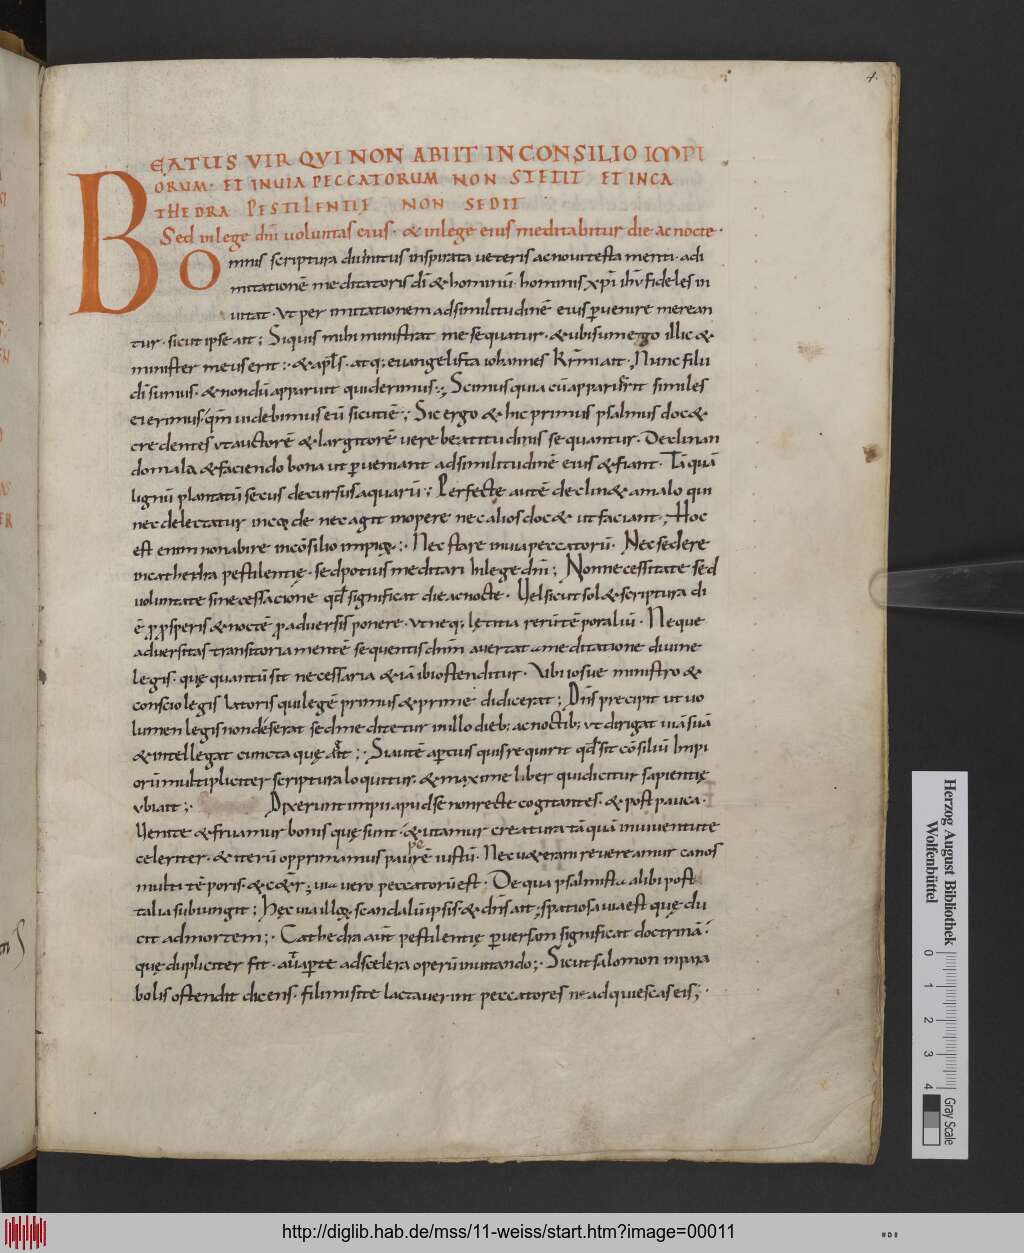 4.
BEATUS VIR QVI NON ABIIT IN CONSILIO IMPI
ORUM· ET IN VIA PECCATORUM NON STETIT ET IN CA
THEDRA PESTILENTIĘ NON SEDIT
Sed in lege dn̄i uoluntas eius· & in lege eius meditabitur die ac nocte·
Omnis scriptura diuinitus inspirata ueteris ac noui testamenti· ad i
mitationē meditatoris dī & hominū· hominis xp̄i ihū fideles in
uitat· Vt per imitationem ad similitudinē eius puenire merean
tur· sicut ipse ait; Si quis mihi ministrat me sequatur· & ubi sum ego illic &
minister meus erit· & apl̄s· atq; euangelista iohannes Nunc filii
dī sumus· & nondū apparuit quid erimus; Scimus quia cū apparuerit similes
ei erimus· qm̄ uidebimus eū sicuti ē; Sic ergo & hic primus psalmus doc&
credentes ut auctorē & largitorē uere beatitudinis sequantur· Declinan
do mala & faciendo bona ut pueniant ad similitudinē eius & fiant· Tā quā
lignū plantatū secus decursus aquarū; Perfecte autē declin& a malo qui
nec delectatur in cede nec agit in opere nec alios doc& ut faciant· Hoc
est enim non abire in cōsilio impię· Nec stare in uia peccatorū· Nec sedere
in cathedra pestilentię· sed potius meditari in lege dn̄i; Non necessitate sed
uoluntate sine cessacione qd̄ significat die ac nocte· Uel sicut sol & scriptura di
ē p psperis & noctē p aduersis ponere· ut neq; lętitia rerū tēporaliū· Neque
aduersitas transitoria mentē sequentis dn̄m auertat a meditatione diuine
legis· quę quantū sit necessaria & iā ibi ostenditur· Vbi iosue ministro &
conscio legis latoris qui legē primus & prime didicerat; Dn̄s precipit ut uo
lumen legis non deserat sed meditetur in illo dieb; ac noctib; ut dirigat uiā suā
& intellegat cuncta quę ; Si autē apertius quis requirit qd̄ sit cōsiliū Impi
orū multipliciter scriptura loquitur· & maxime liber qui dicitur sapientię
ubi ait; Dixerunt impii apud se non recte cogitantes· & post pauca·
Uenite & fruamur bonis quę sunt· & utamur creatura tā quā in iuuentute
celeriter· & iterū opprimamus pauperē iustū· Nec ueterani reuereamur canos
multi tēporis· & c&r; uia uero peccatorū est· De qua psalmista alibi post
talia subiungit; Hęc uia illoꝝ scandalū ipsis· & dn̄s ait· spatiosa uia est quę du
cit ad mortem; Cathedra aut̄ pestilentię puersam significat doctrinā·
quę dupliciter fit· aut aperte ad scelera operū inuitando; Sicut salomon in para
bolis ostendit dicens· fili mi si te lactauerint peccatores ne adquiescas eis;·
Herzog August Bibliothek
Wolfenbüttel
0 1 2 3 4
Gray Scale
http://diglib.hab.de/mss/11-weiss/start.htm?image=00011